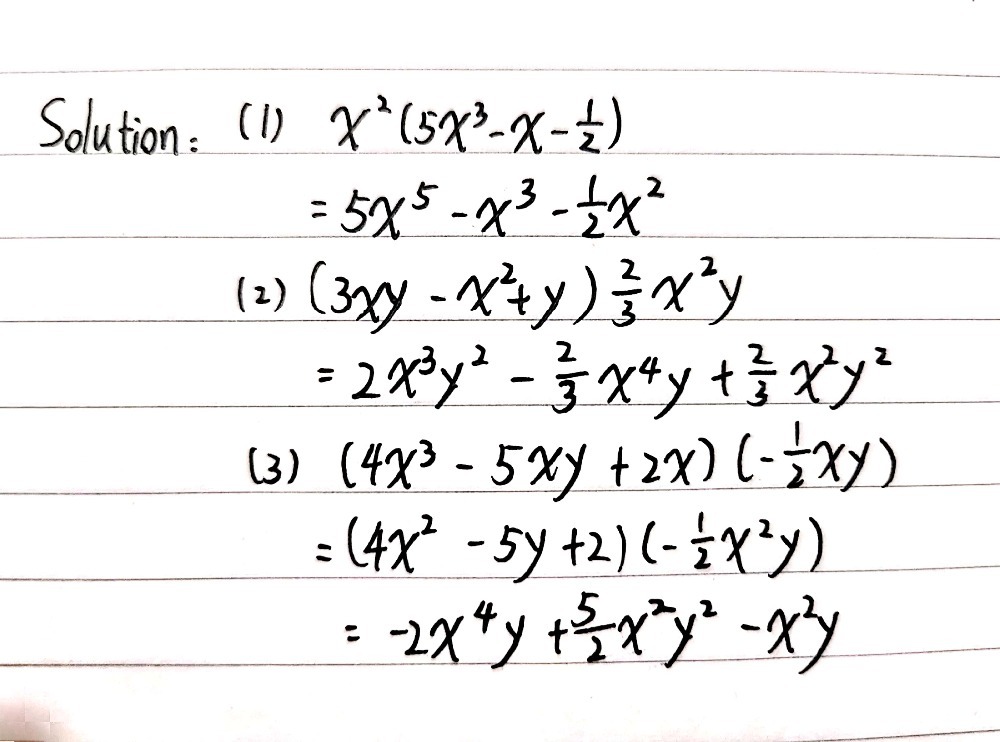 Solution: (1) x²(5x³-x-1/2)
=5x⁵-x³-1/2x²
(2) (3xy-x²+y)2/3x²y
=2x³y²-2/3x⁴y+2/3x²y²
(3) (4x³-5xy+2x)(-1/2xy)
=(4x²-5y+2)(-1/2x²y)
=-2x⁴y+5/2x²y²-x²y